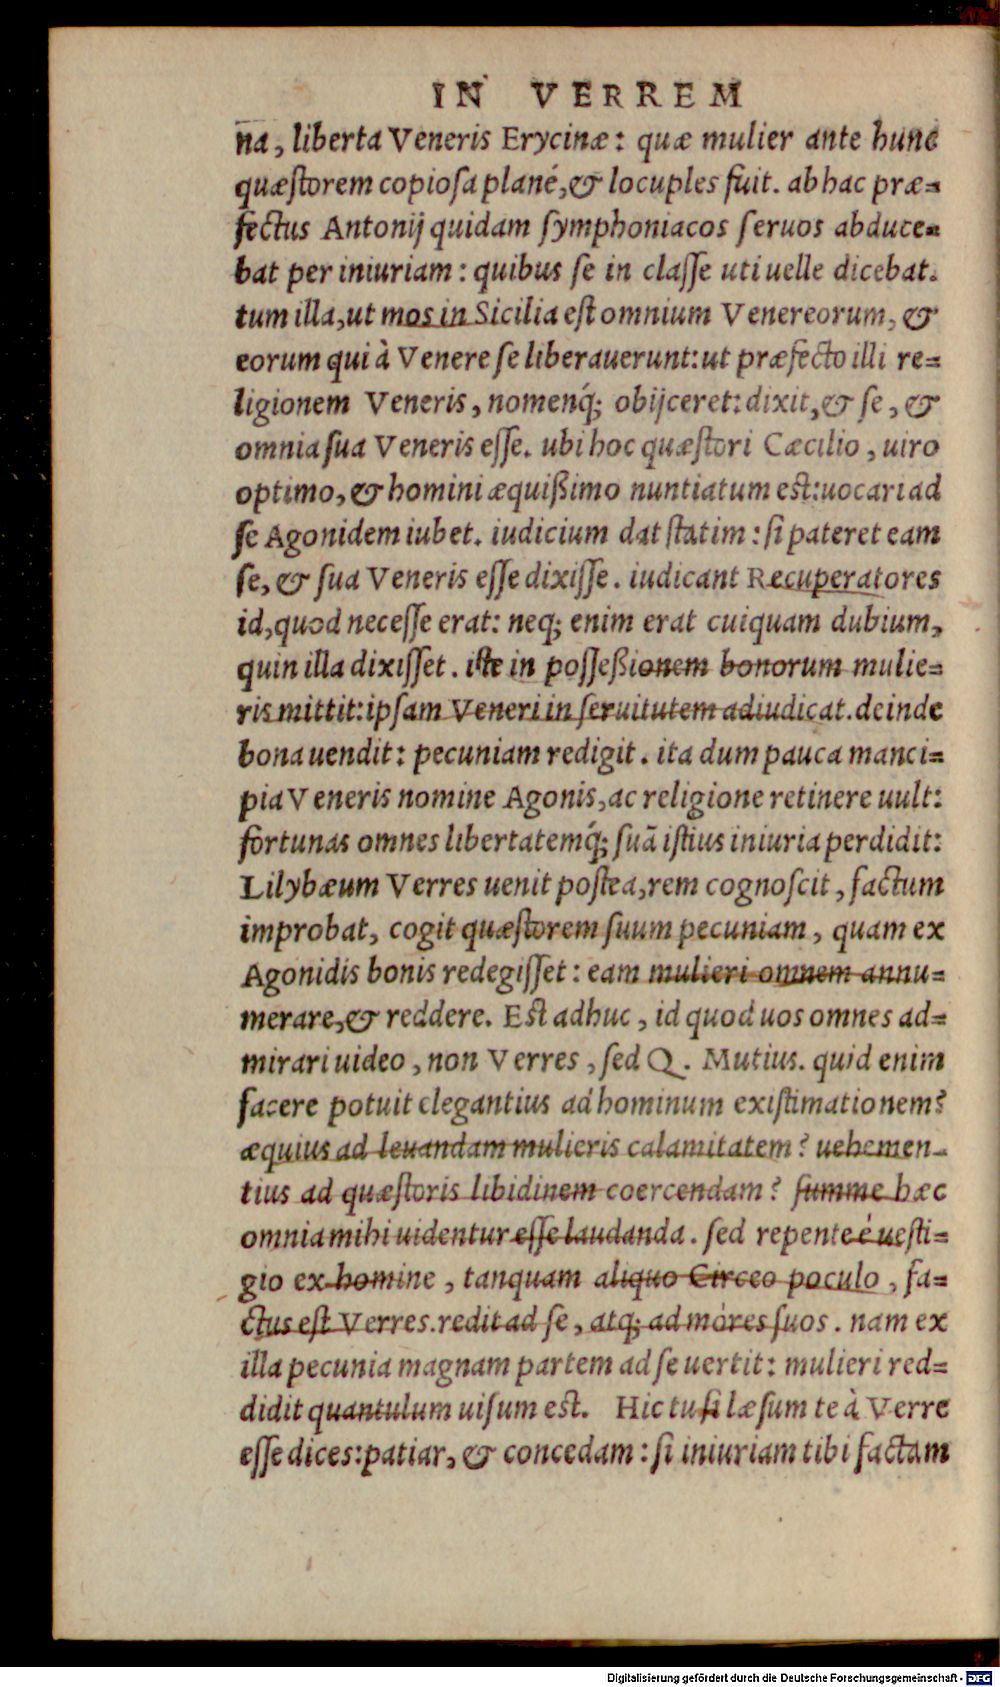 IN VERREM
na, liberta Veneris Erycinæ: quæ mulier ante hunc
quæſtorem copioſa plané, & locuples fuit. ab hac præ=
fectus Antonij quidam ſymphoniacos ſeruos abduce=
bat per iniuriam: quibus ſe in claſſe uti uelle dicebat.
tum illa, ut mos in Sicilia eſt omnium Venereorum, &
eorum qui à Venere ſe liberauerunt: ut præfecto illi re=
ligionem Veneris, nomenq́; obijceret: dixit, & ſe, &
omnia ſua Veneris eſſe. ubi hoc quæſtori Cæcilio, uiro
optimo, & homini æquißimo nuntiatum eſt: uocari ad
ſe Agonidem iubet. iudicium dat ſtatim: ſi pateret eam
ſe, & ſua Veneris eſſe dixiſſe. iudicant Recuperatores
id, quod neceſſe erat: neq; enim erat cuiquam dubium,
quin illa dixiſſet. iſte in poſſeßionem bonorum mulie=
ris mittit: ipſam Veneri in ſeruitutem adiudicat. deinde
bona uendit: pecuniam redigit. ita dum pauca manci=
pia Veneris nomine Agonis, ac religione retinere uult:
fortunas omnes libertatemq́; ſuã iſtius iniuria perdidit:
Lilybæum Verres uenit poſtea, rem cognoſcit, factum
improbat, cogit quæſtorem ſuum pecuniam, quam ex
Agonidis bonis redegiſſet: eam mulieri omnem annu=
merare, & reddere. Eſt adhuc, id quod uos omnes ad=
mirari uideo, non Verres, ſed Q. Mutius. quid enim
facere potuit elegantius ad hominum exiſtimationem?
æquius ad leuandam mulieris calamitatem? uehemen=
tius ad quæſtoris libidinem coercendam? ſumme hæc
omnia mihi uidentur eſſe laudanda. ſed repente é ueſti=
gio ex homine, tanquam aliquo Circeo poculo, fa=
ctus eſt Verres. redit ad ſe, atq; ad mores ſuos. nam ex
illa pecunia magnam partem ad ſe uertit: mulieri red=
didit quantulum uiſum eſt. Hic tu ſi læſum te à Verre
eſſe dices: patiar, & concedam: ſi iniuriam tibi factam
Digitalisierung gefördert durch die Deutsche Forschungsgemeinschaft - DFG